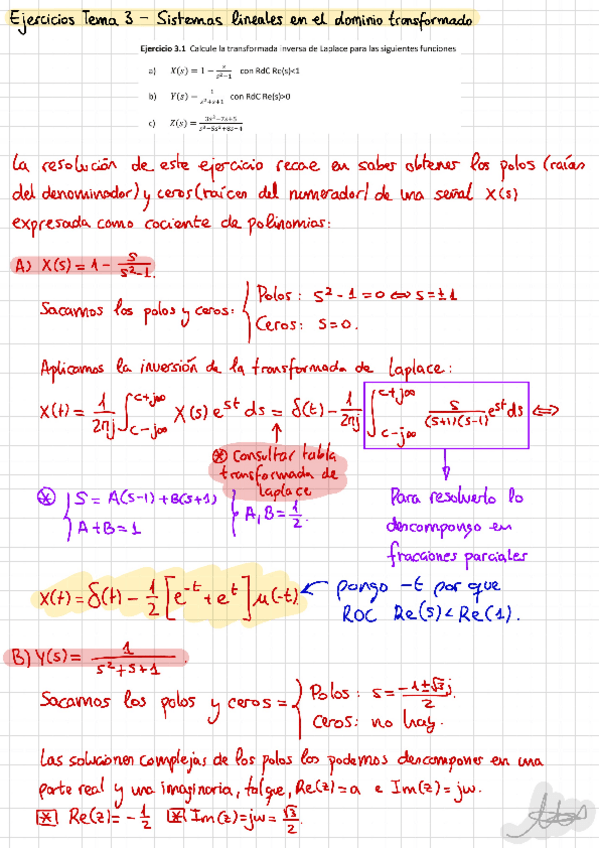 Ejercicios Tema 3 - Sistemas lineales en el dominio transformado
Ejercicio 3.1 Calcule la transformada inversa de Laplace para las siguientes funciones
a) X(s) = 1 - s/(s²-1) con RdC Re(s)<1
b) Y(s) = 1/(s²+s+1) con RdC Re(s)>0
c) Z(s) =
La resolución de este ejercicio recae en saber obtener los polos (raíces
del denominador) y ceros (raíces del numerador) de una señal X(s)
expresada como cociente de polinomios:
A) X(s) = 1 - s/(s²-1).
Sacamos los polos y ceros: { Polos: s²-1=0 ⇔ s=±1
Ceros: s=0.
Aplicamos la inversión de la transformada de Laplace:
X(t) = 1/(2πj) ∫_{c-j∞}^{c+j∞} X(s) e^{st} ds = δ(t) - 1/(2πj) ∫_{c-j∞}^{c+j∞} s/((s+1)(s-1)) e^{st} ds ⇔
⊛ Consultar tabla
transformada de
Laplace
⊛ { S = A(s-1)+B(s+1)
A+B=1 } A,B=1/2.
Para resolverlo lo
descompongo en
fracciones parciales
X(t) = δ(t) - 1/2 [e^{-t} + e^{t}] μ(-t)
pongo -t por que
ROC Re(s) < Re(1).
B) Y(s) = 1/(s²+s+1).
Sacamos los polos y ceros = { Polos: s = (-1±√3j)/2.
Ceros: no hay.
Las soluciones complejas de los polos los podemos descomponer en una
parte real y una imaginaria, tal que, Re(z)=a e Im(z)=jw.
⊛ Re(z) = -1/2 ⊛ Im(z)=jw= √3/2.